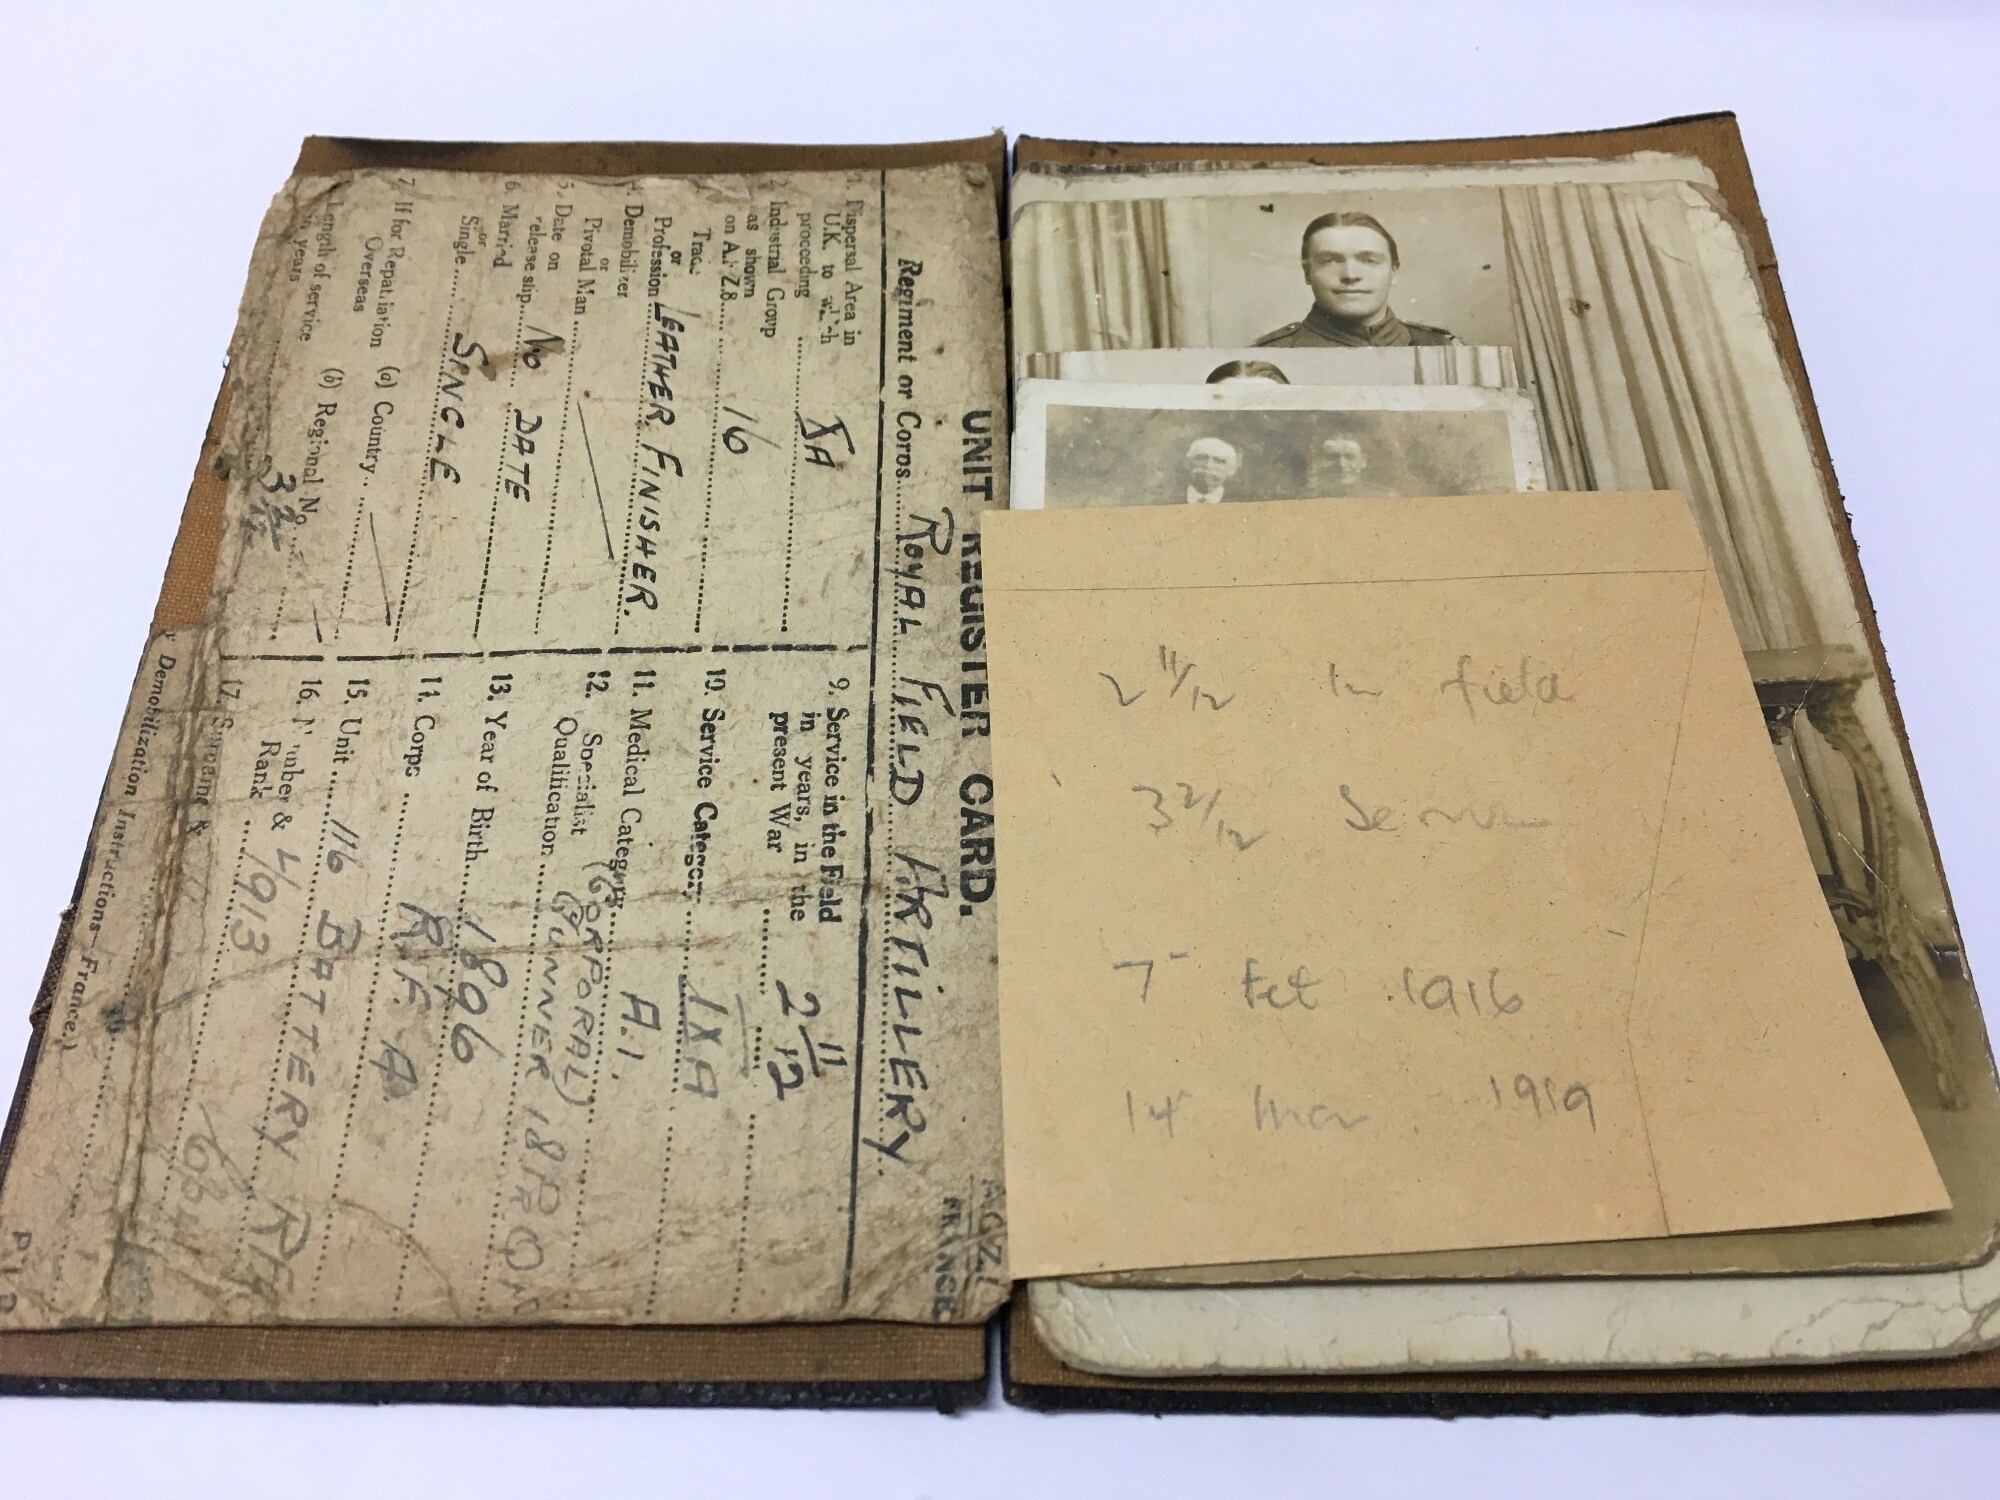 UNIT REGISTER CARD.
FRANCE
Regiment or Corps ROYAL FIELD ARTILLERY.
1. Dispersal Area in
U.K. to which
proceeding XA
2. Industrial Group
as shown
on A.F. Z.8. 16
3. Trade
or
Profession LEATHER FINISHER.
4. Demobilizer
or
Pivotal Man
5. Date on
release slip. NO DATE
6. Married
or
Single SINGLE
7. If for Repatriation (a) Country
Overseas
(b) Regional No.
Length of service
in years 3 2/12
9. Service in the Field
in years, in the
present War 2 11/12
10. Service Category 1XA
11. Medical Category A.1.
12. Specialist (CORPORAL)
Qualification GUNNER 18PR QQ
13. Year of Birth 1896
14. Corps R.F.A.
15. Unit 116 BATTERY
16. Number & 4913
Rank
17. Surname &
Demobilization Instructions—France.)
2 11/12 In field
3 2/12 Service
7 Feb 1916
14 Mar 1919